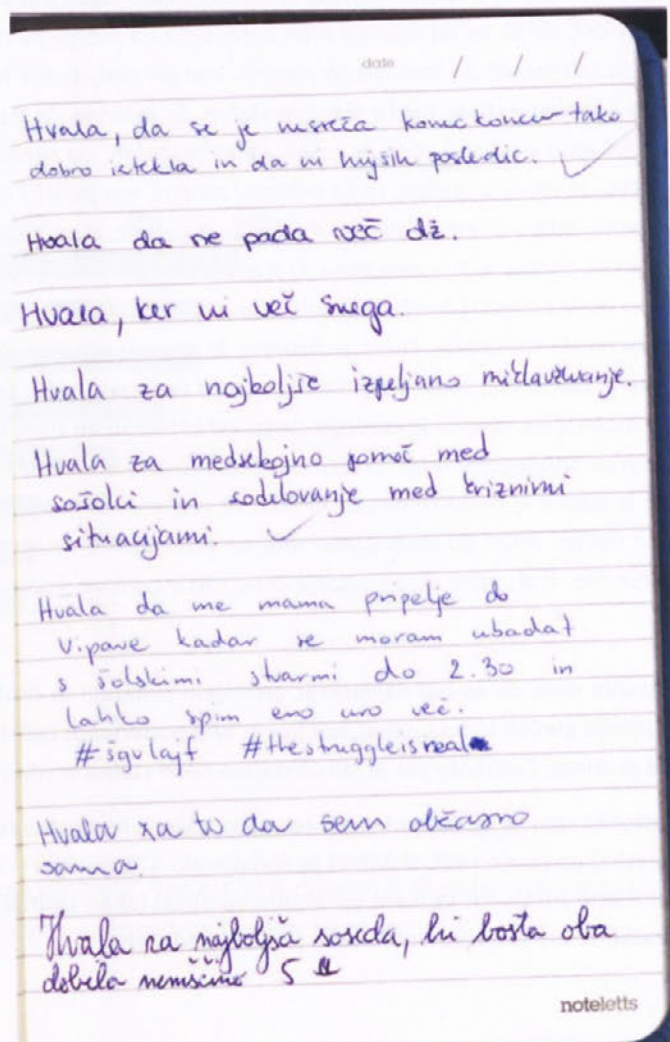 date / / /
Hvala, da se je nesreča konec koncev tako
dobro iztekla in da ni hujših posledic. ✓
Hvala da ne pada več dž.
Hvala, ker ni več snega.
Hvala za najboljše izpeljano
Hvala za medsebojno pomoč med
sošolci in sodelovanje med kriznimi
situacijami. ✓
Hvala da me mama pripelje do
Vipave kadar se moram ubadat
s šolskimi stvarmi do 2.30 in
lahko spim eno uro več.
#šgvlajf #thestruggleisreal
Hvala za to da sem občasno
sama.
Hvala za najboljša soseda, ki bosta oba
dobila nemščino 5
noteletts